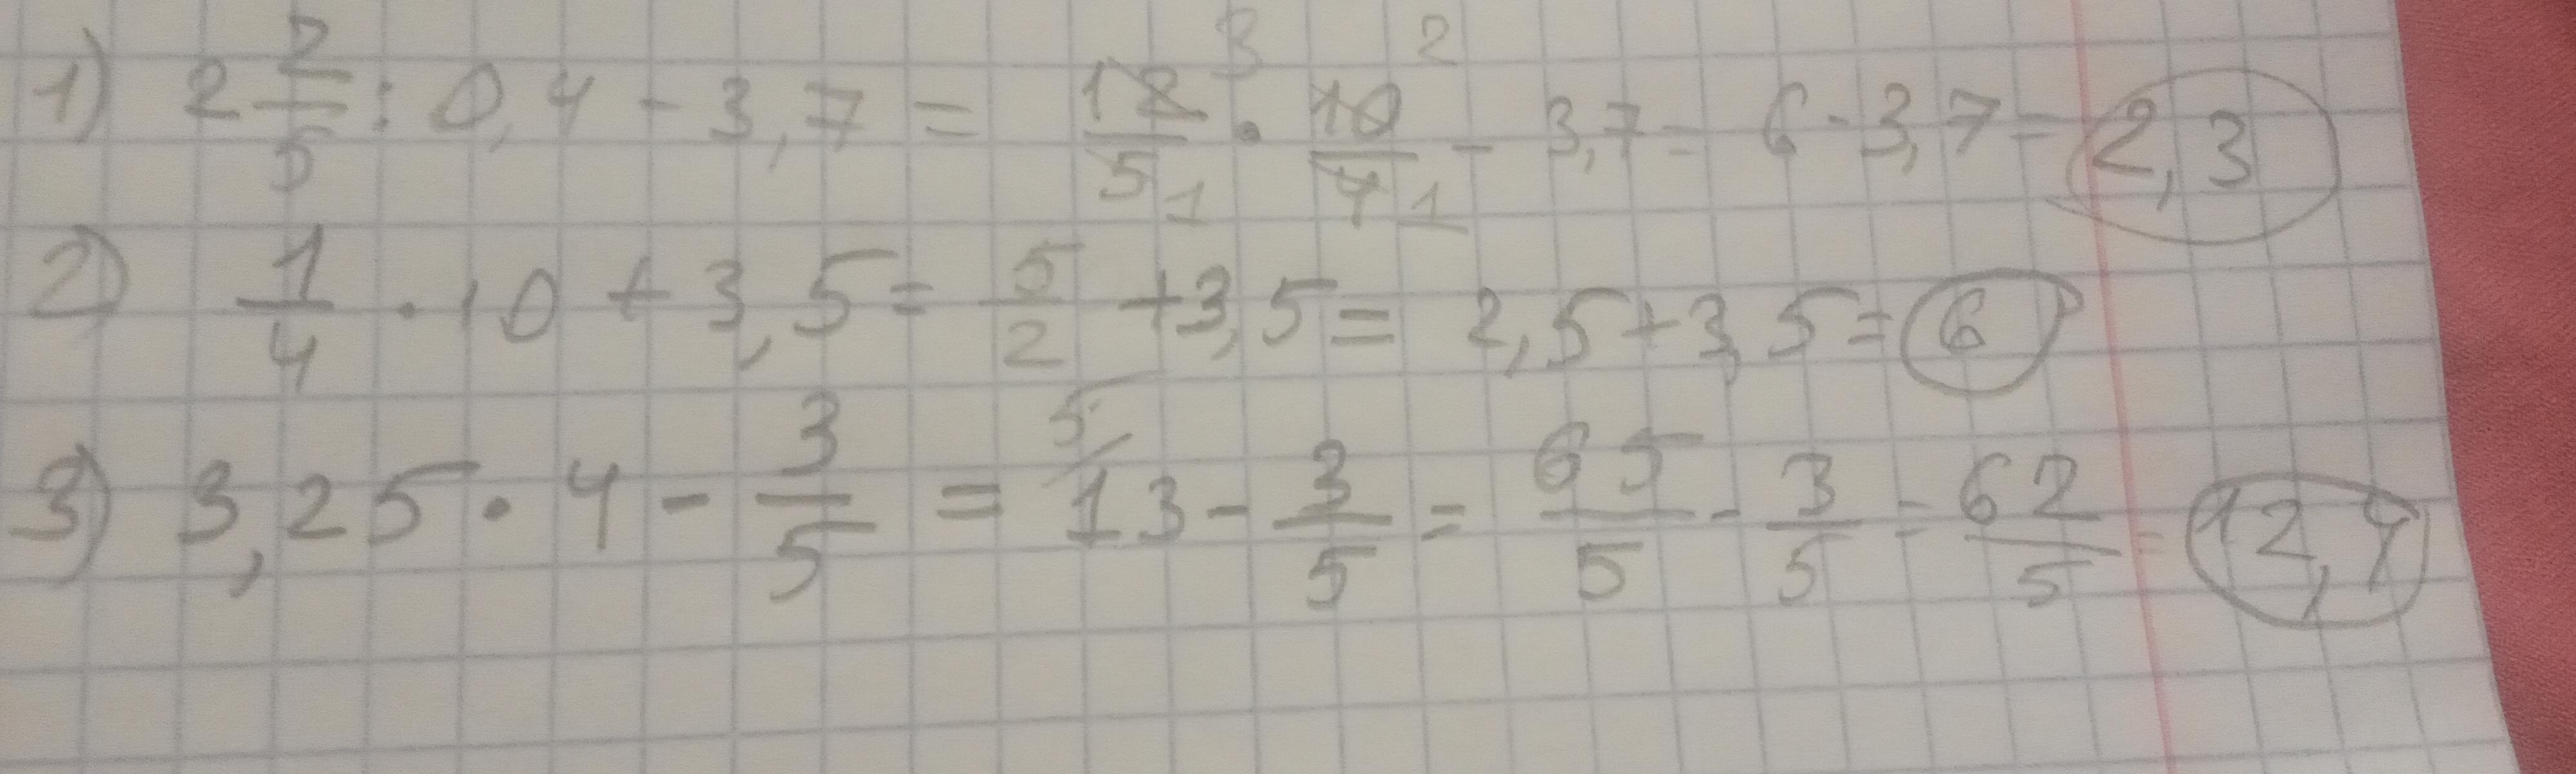 1) 2 2/5 : 0,4 - 3,7 = 12/5 3 1 · 10/4 2 1 - 3,7 = 6 - 3,7 = 2,3
2) 1/4 · 10 + 3,5 = 5/2 + 3,5 = 2,5 + 3,5 = 6
3) 3,25 · 4 - 3/5 = 5/ 13 - 3/5 = 65/5 - 3/5 = 62/5 = 12,4